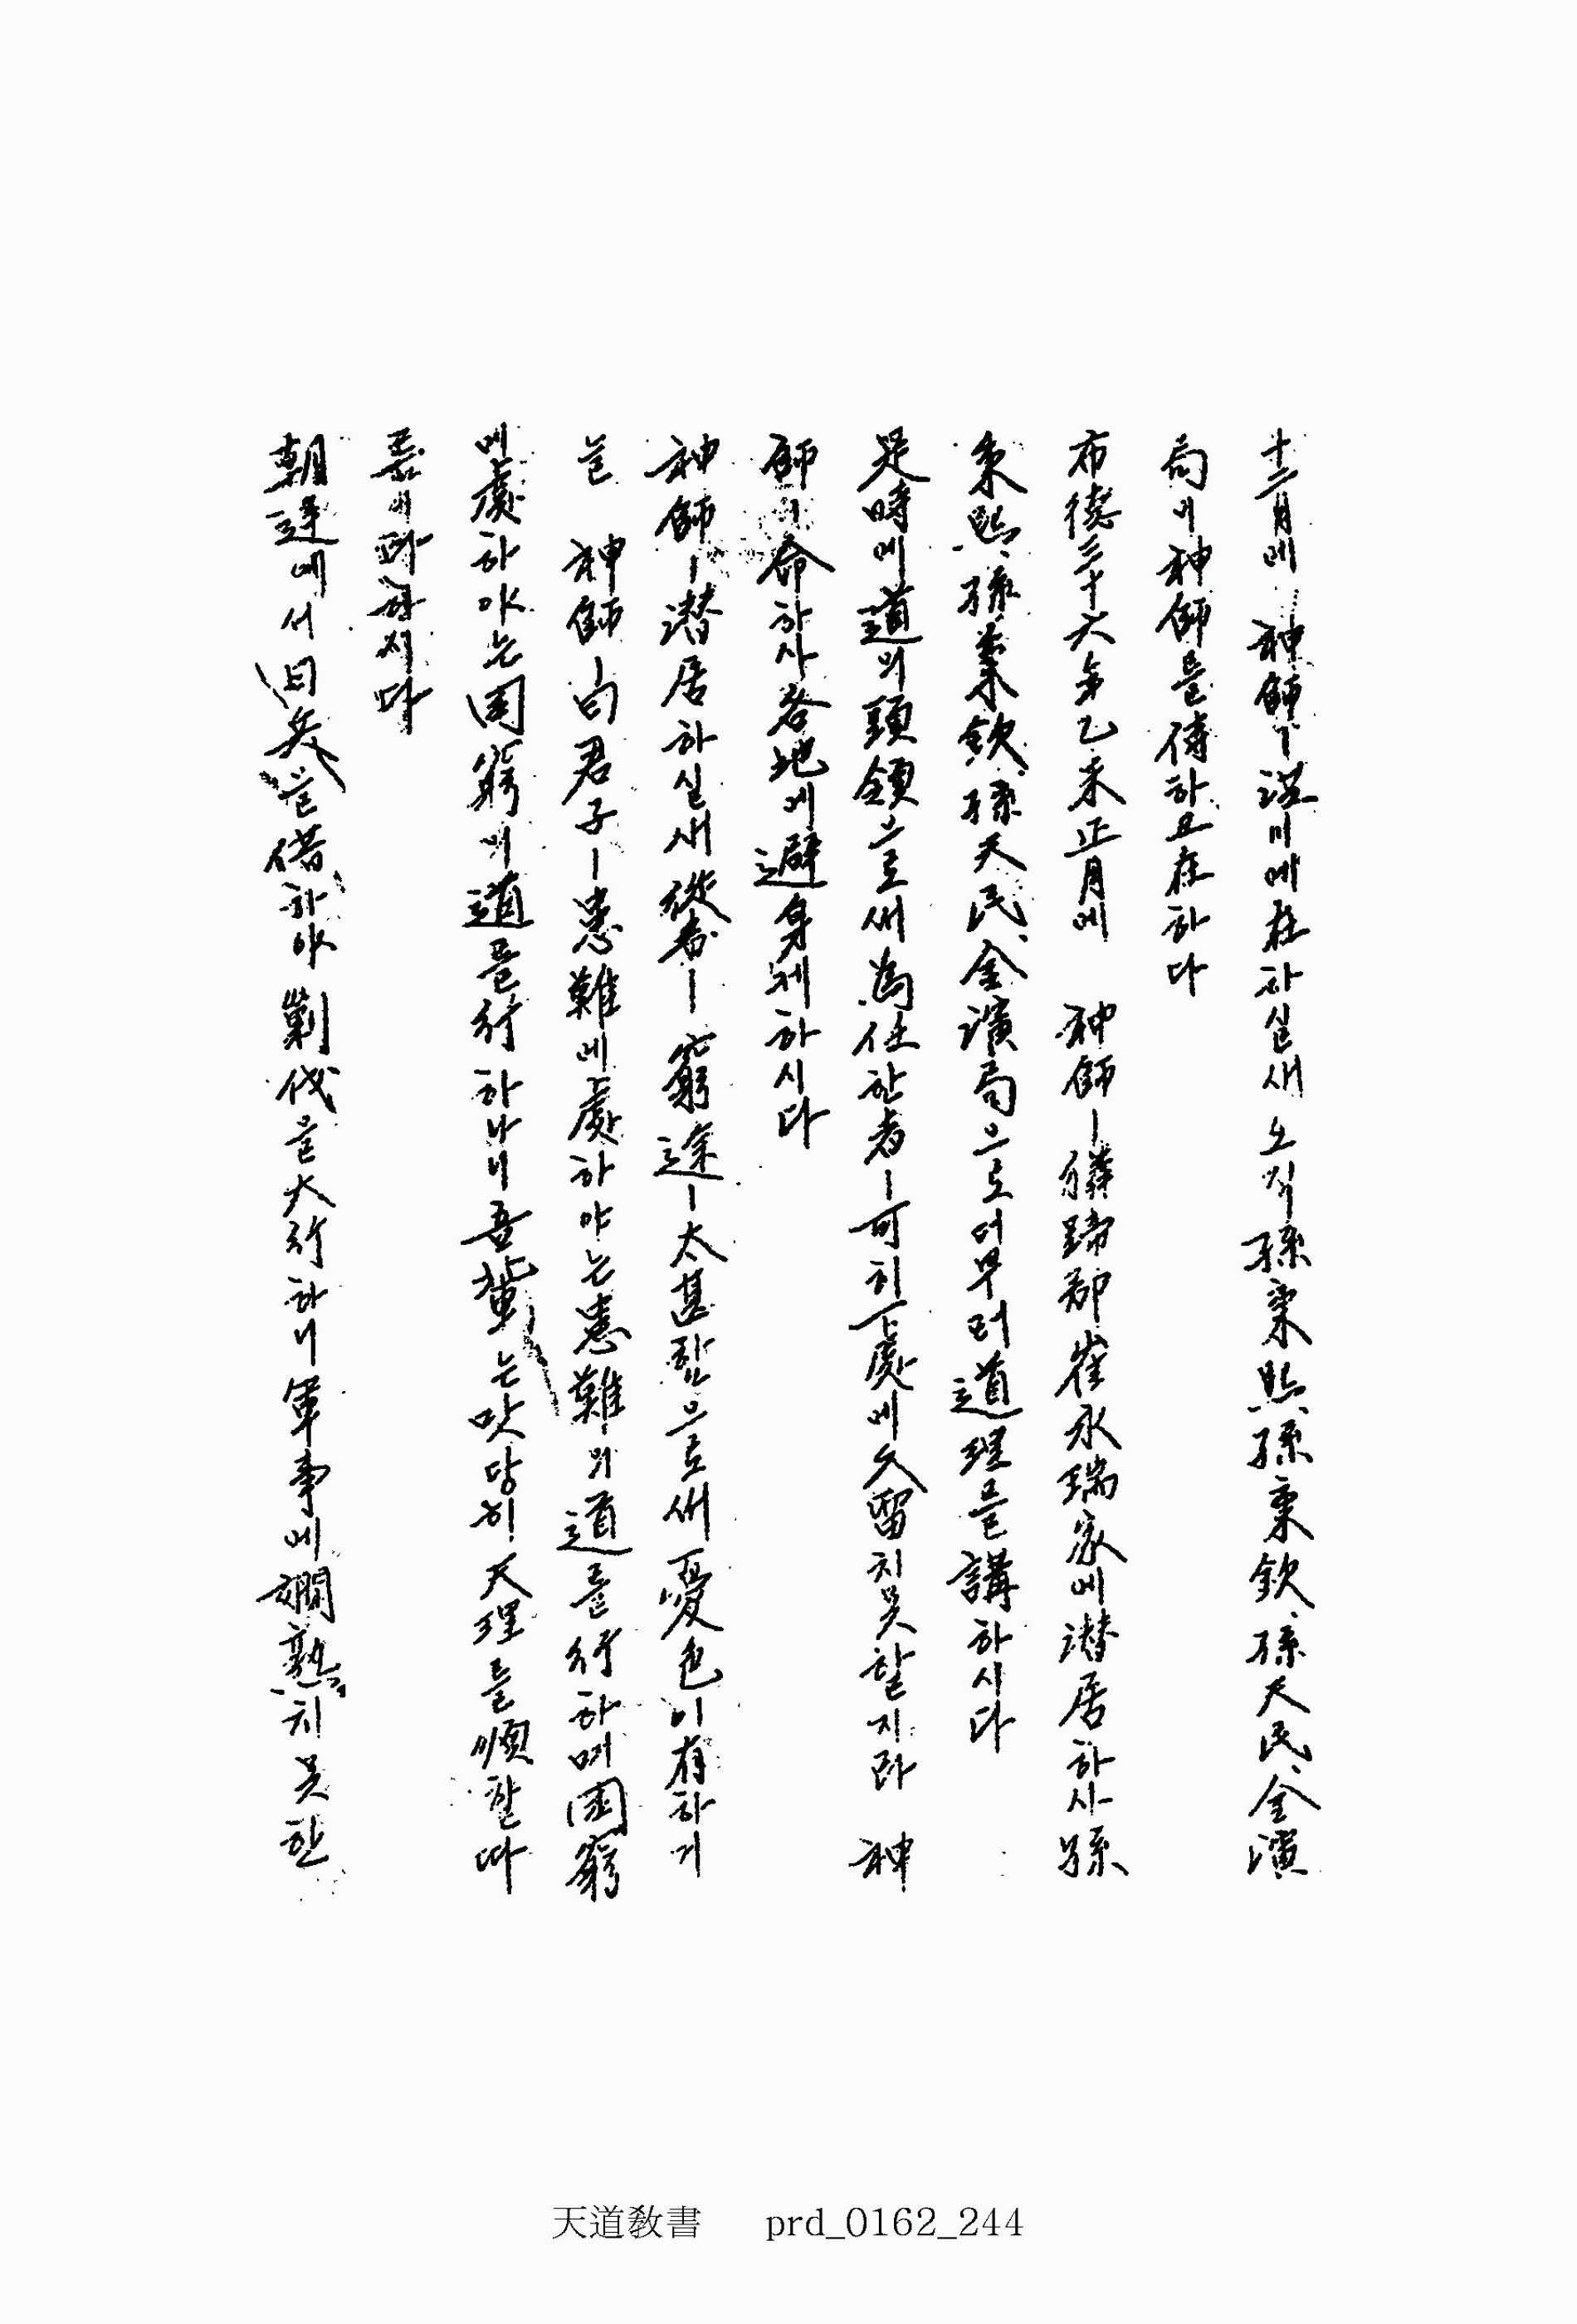 十二月에 神師ㅣ洪川에在하실새 오직 孫秉熙、孫秉欽、孫天民、金演
局이神師를侍하고在하다
布德三十六年乙未正月에 神師ㅣ麟蹄郡崔永瑞家에潛居하사孫
秉熙、孫秉欽、孫天民、金演局으로더부러道理를講하시다
是時에道의頭領으로써爲仕한者ㅣ可히一處에久留치못할지라 神
師ㅣ命하사各地에避身케하시다
神師ㅣ潛居하실새從者ㅣ窮途ㅣ太甚함으로써憂色이有하기
늘 神師ㅣ曰君子ㅣ患難에處하야는患難의道를行하며困窮
에處하야는困窮의道를行하나니吾輩는맛당히天理를順할따
름이라하시다
朝廷에서日兵을借하야剿伐을大行하니軍事에嫺熟치못한
天道敎書 prd_0162_244